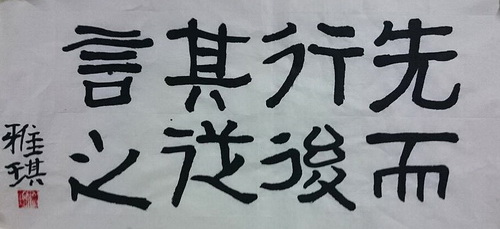 先行其言
而後従之
雅琪